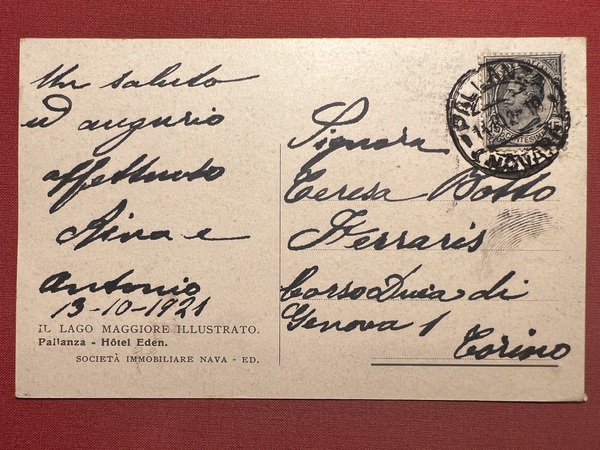 Un saluto
ed augurio
affettuoso
Aina e
Antonio
13-10-1921
IL LAGO MAGGIORE ILLUSTRATO.
Pallanza - Hôtel Eden.
SOCIETÀ IMMOBILIARE NAVA - ED.
PALLANZA
(NOVARA)
Signora
Teresa Botto
Ferraris
Corso Duca di
Genova 1
Torino